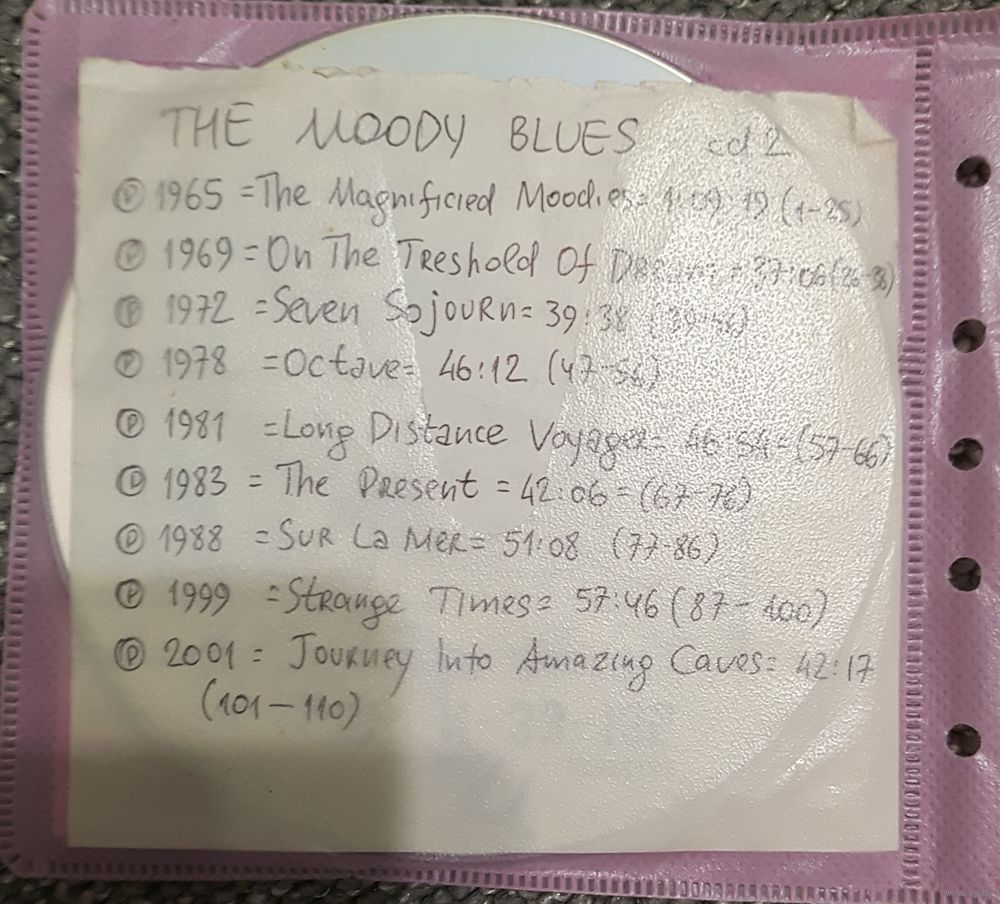 THE MOODY BLUES cd 2
Ⓟ 1965 =The Magnificied Moodies= 1:09:19 (1-25)
Ⓟ 1969 = On The Treshold Of = 37:06 (26-38)
Ⓟ 1972 =Seven Sojourn= 39:38 (39-46)
Ⓟ 1978 =Octave= 46:12 (47-56)
Ⓟ 1981 =Long Distance Voyager= 46:54=(57-66)
Ⓟ 1983 = The Present = 42:06=(67-76)
Ⓟ 1988 =Sur La Mer= 51:08 (77-86)
Ⓟ 1999 =Strange Times= 57:46 (87-100)
Ⓟ 2001 = Journey Into Amazing Caves= 42:17
(101-110)